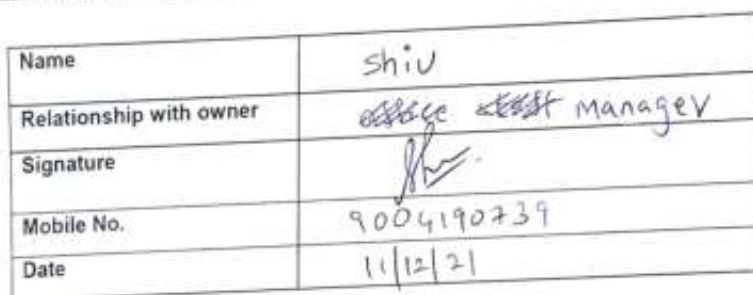 Name shiv
Relationship with owner manager
Signature
Mobile No. 9004190739
Date 11/12/21